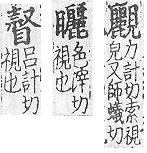 䚕
力計切索視
皃又師蟻切
矖
色滓切
視也
吕計切
視也